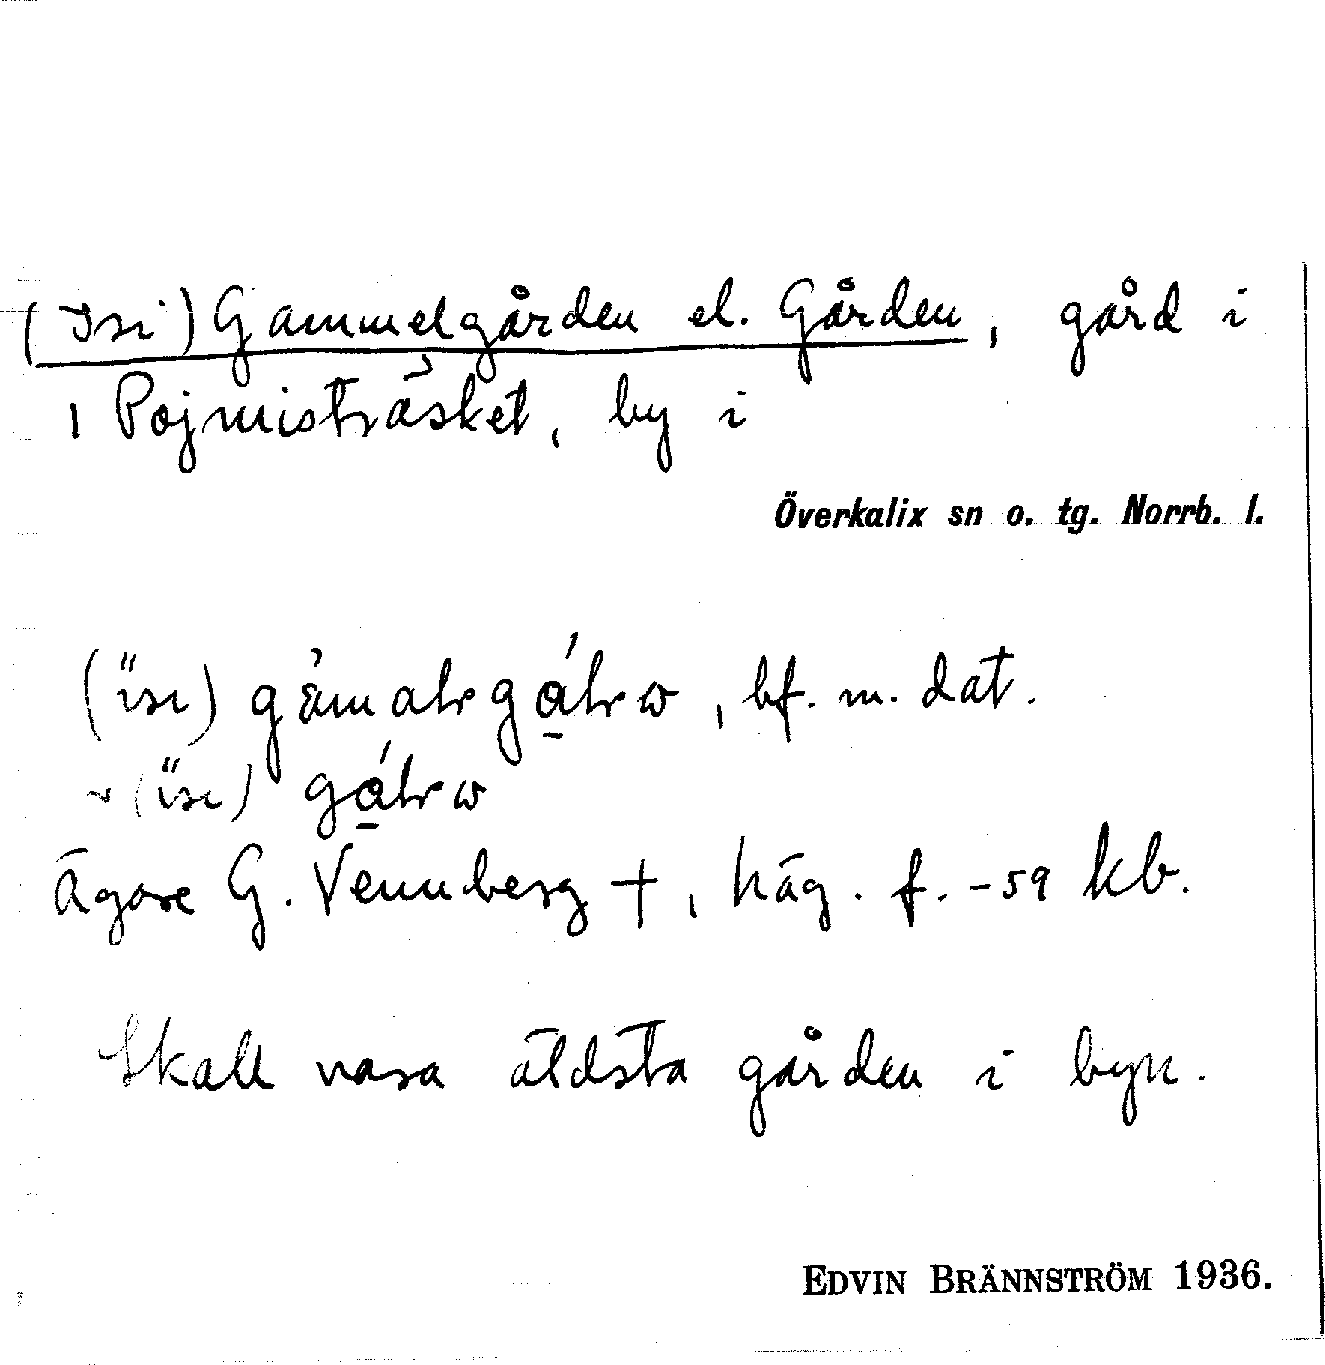 (Isi) Gammelgården el. Gården, gård i
i Pojmisträsket, by i
Överkalix sn o. tg. Norrb. l.
bf. m. dat.
~
Ägare G. Vennberg †, häg. f. -59 kb.
Skall vara äldsta gården i byn.
EDVIN BRÄNNSTRÖM 1936.